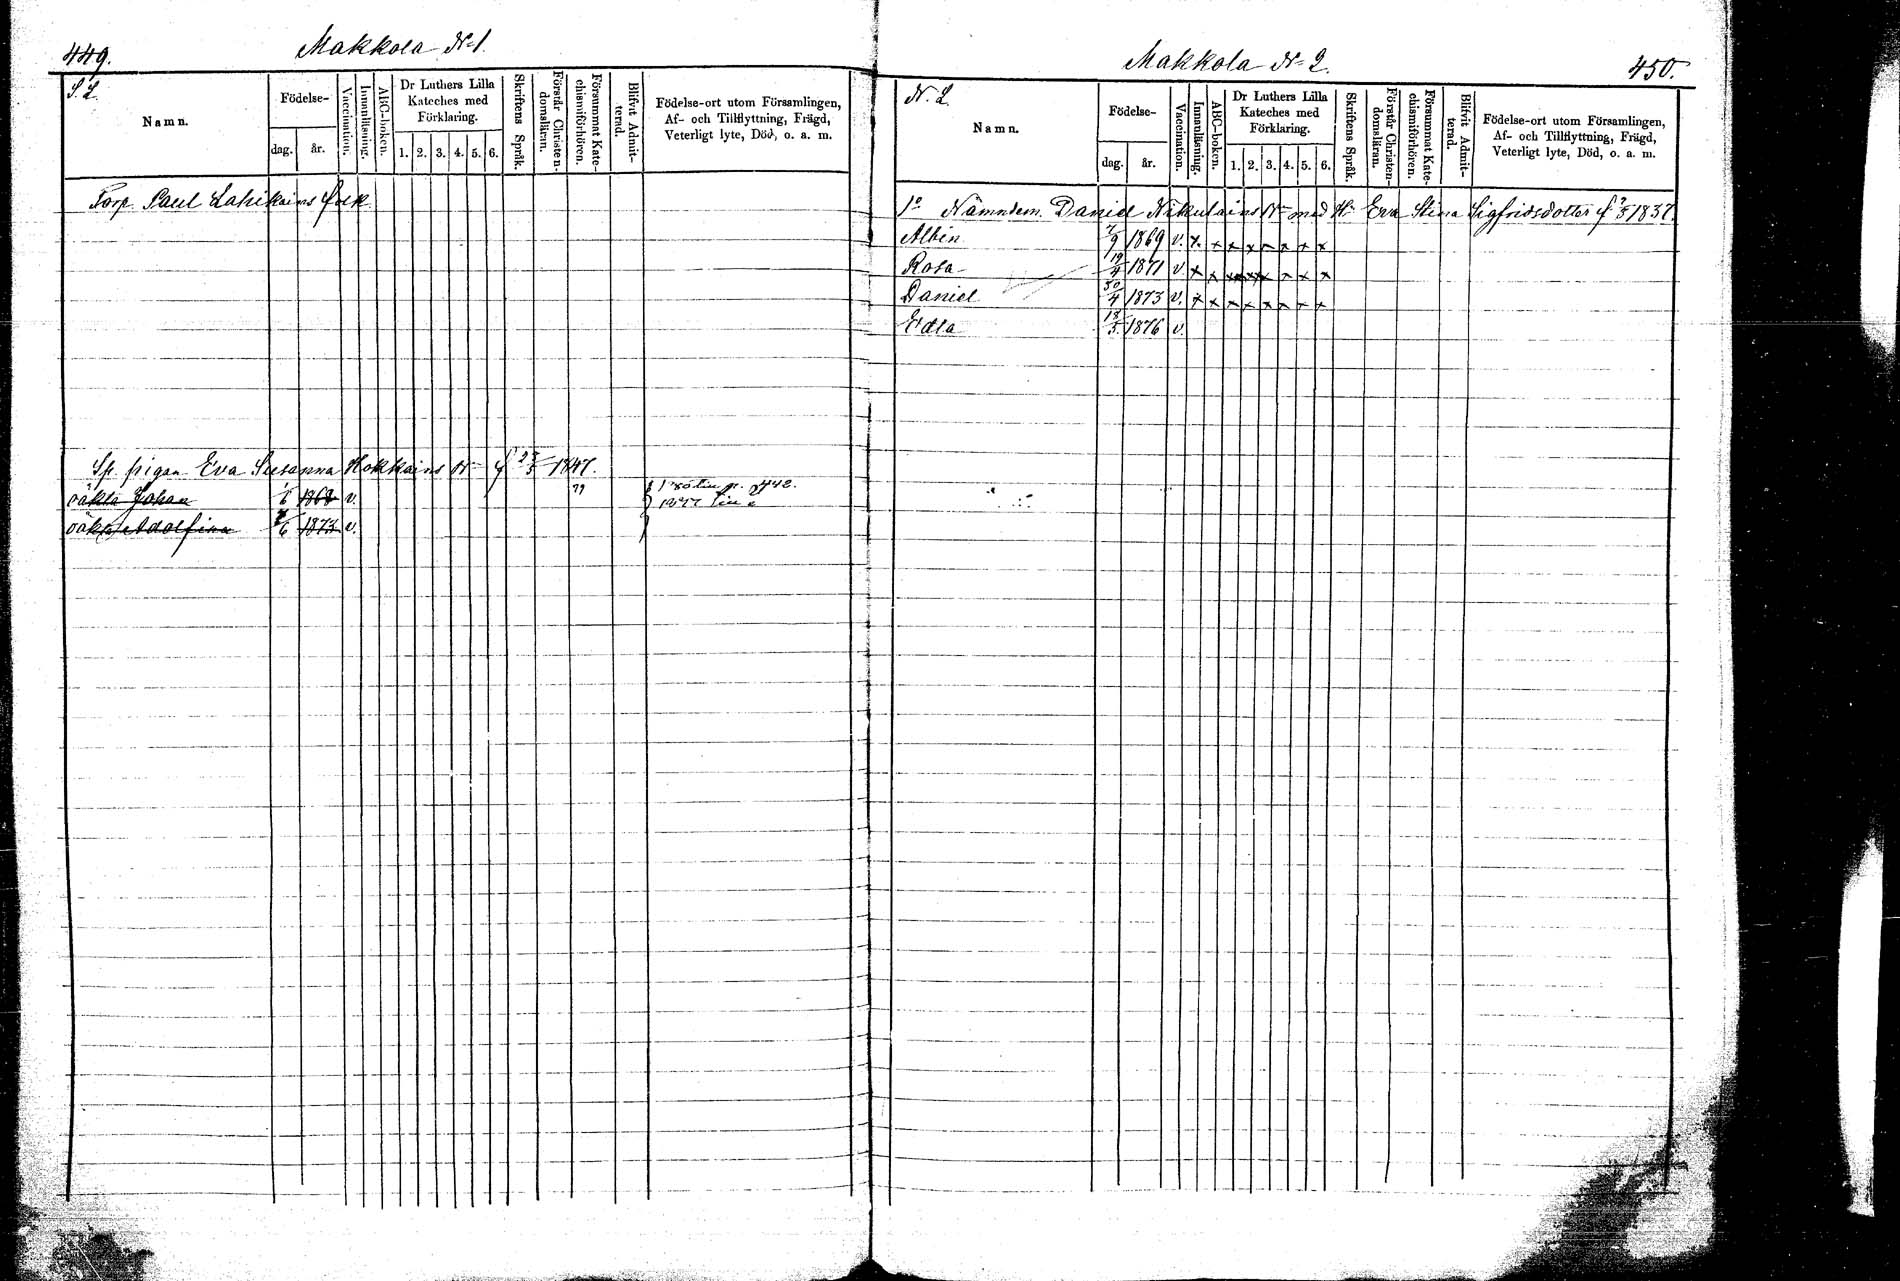 449.
Makkola N 1.
S. L.
Namn.
Födelse-
dag.
år.
Vaccination.
Innanläsning.
ABC-boken.
Dr Luthers Lilla
Kateches med
Förklaring.
1. 2. 3. 4. 5. 6.
Skriftens Språk.
Förstår Christen-
domsläran.
Försummat Kate-
chismiförhören.
Blifvit Admit-
terad.
Födelse-ort utom Församlingen,
Af- och Tillflyttning, Frägd,
Veterligt lyte, Död, o. a. m.
Torp. Paul Lahikains folk
Sp. pigan Eva Susanna Hokkains N f 23/5 1847.
oäkta Johan 1868 v. 79 442.
oäkta Adolfina 1873 v.
Makkola N 2.
450.
N. L.
Namn.
Födelse-
dag.
år.
Vaccination.
Innanläsning.
ABC-boken.
Dr Luthers Lilla
Kateches med
Förklaring.
1. 2. 3. 4. 5. 6.
Skriftens Språk.
Förstår Christen-
domsläran.
Försummat Kate-
chismiförhören.
Blifvit Admit-
terad.
Födelse-ort utom Församlingen,
Af- och Tillflyttning, Frägd,
Veterligt lyte, Död, o. a. m.
1o Nämndem. Daniel Nikulains N med H Eva Stina Sigfridsdotter f 1837.
Albin 7/9 1869 v. x x x x x x x x
Rosa 19/4 1871 v. x x x x x x x x
Daniel 30/4 1873 v. x x x x x x x x
Edla 18/5 1876 v.